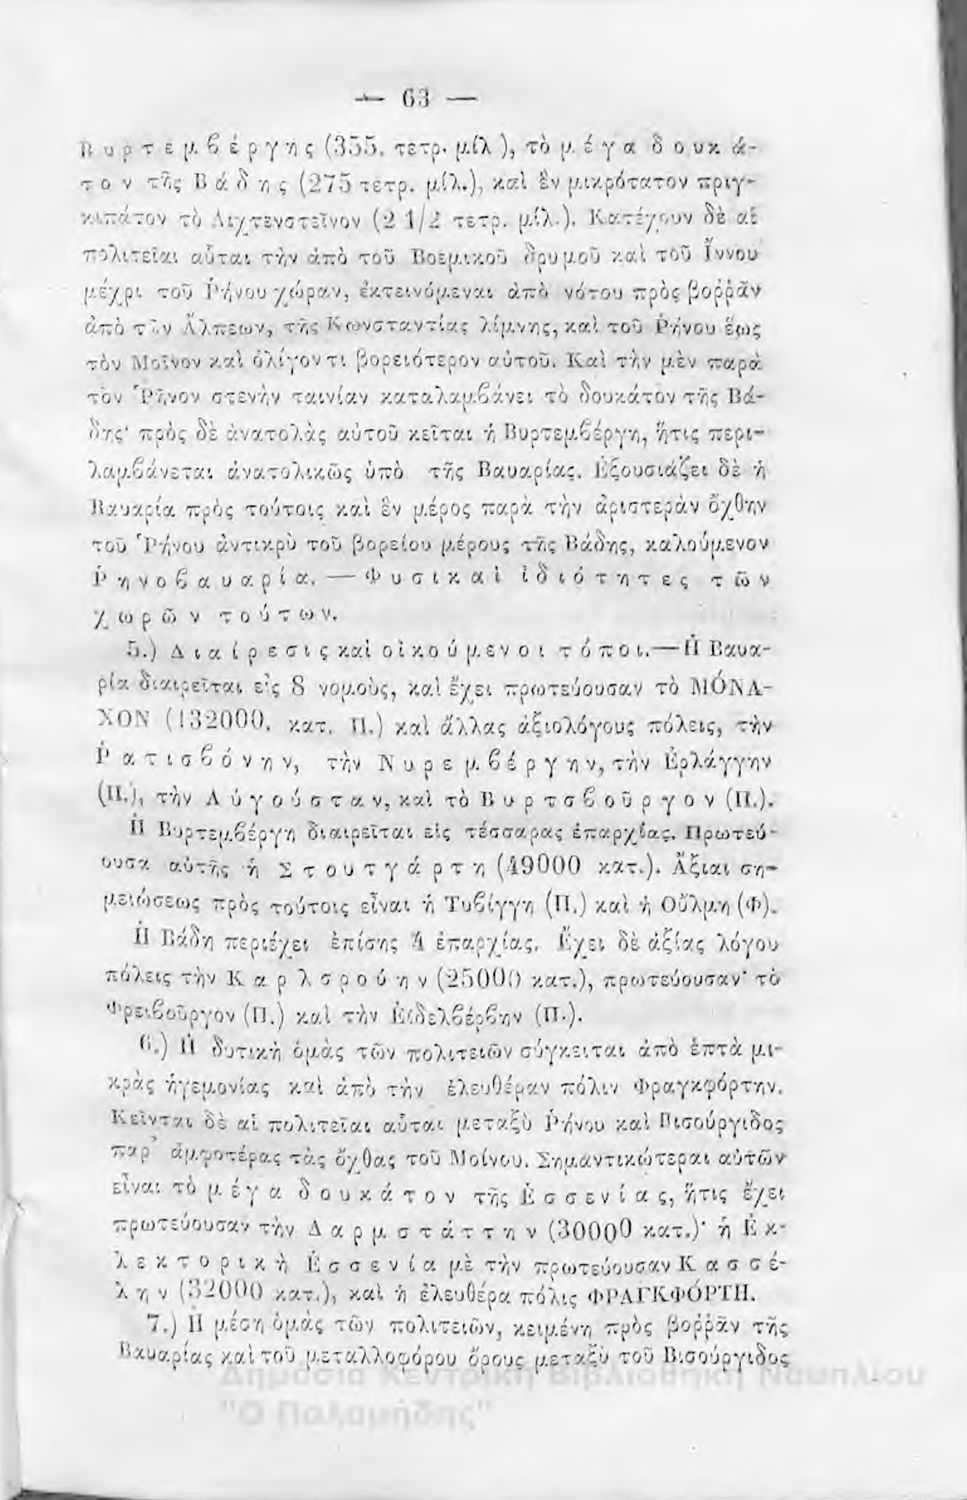 — 63 —
Βυρτεμβέργης (355. τετρ. μίλ), τὸ μέγα δουκά-
τον τῆς Βάδης (275 τετρ. μίλ.), καὶ ἓν μικρότατον πριγ-
κιπάτον τὸ Λιχτενστεῖνον (2 1/2 τετρ. μίλ.). Κατέχουν δὲ αἱ
πολιτεῖαι αὗται τὴν ἀπὸ τοῦ Βοεμικοῦ δρυμοῦ καὶ τοῦ Ἴννου
μέχρι τοῦ Ῥήνου χώραν, ἐκτεινόμεναι ἀπὸ νότου πρὸς βοῤῥᾶν
ἀπὸ τῶν Ἄλπεων, τῆς Κωνσταντίας λίμνης, καὶ τοῦ Ῥήνου ἕως
τὸν Μοῖνον καὶ ὀλίγον τι βορειότερον αὐτοῦ. Καὶ τὴν μὲν παρὰ
τὸν Ῥῆνον στενὴν ταινίαν καταλαμβάνει τὸ δουκάτον τῆς Βά-
δης· πρὸς δὲ ἀνατολὰς αὐτοῦ κεῖται ἡ Βυρτεμβέργη, ἥτις περι-
λαμβάνεται ἀνατολικῶς ὑπὸ τῆς Βαυαρίας. Ἐξουσιάζει δὲ ἡ
Βαυαρία πρὸς τούτοις καὶ ἓν μέρος παρὰ τὴν ἀριστερὰν ὄχθην
τοῦ Ῥήνου ἀντικρὺ τοῦ βορείου μέρους τῆς Βάδης, καλούμενον
Ῥηνοβαυαρία. — Φυσικαὶ ἰδιότητες τῶν
χωρῶν τούτων.
5.) Διαίρεσις καὶ οἰκούμενοι τόποι.— Ἡ Βαυα-
ρία διαιρεῖται εἰς 8 νομοὺς, καὶ ἔχει πρωτεύουσαν τὸ ΜΟΝΑ-
ΧΟΝ (132000. κατ. Π.) καὶ ἄλλας ἀξιολόγους πόλεις, τὴν
Ῥατισβόνην, τὴν Νυρεμβέργην, τὴν Ἐρλάγγην
(Π.), τὴν Αὐγούσταν, καὶ τὸ Βυρτσβοῦργον (Π.).
Ἡ Βυρτεμβέργη διαιρεῖται εἰς τέσσαρας ἐπαρχίας. Πρωτεύ-
ουσα αὐτῆς ἡ Στουτγάρτη (49000 κατ.). Ἄξιαι ση-
μειώσεως πρὸς τούτοις εἶναι ἡ Τυβίγγη (Π.) καὶ ἡ Οὔλμη (Φ).
Ἡ Βάδη περιέχει ἐπίσης 4 ἐπαρχίας. Ἔχει δὲ ἀξίας λόγου
πόλεις τὴν Καρλσρούην (25000 κατ.), πρωτεύουσαν· τὸ
Φρειβοῦργον (Π.) καὶ τὴν Ἐϊδελβέρβην (Π.).
6.) Ἡ δυτικὴ ὁμὰς τῶν πολιτειῶν σύγκειται ἀπὸ ἑπτὰ μι-
κρὰς ἡγεμονίας καὶ ἀπὸ τὴν ἐλευθέραν πόλιν Φραγκφόρτην.
Κεῖνται δὲ αἱ πολιτεῖαι αὗται μεταξὺ Ῥήνου καὶ Βισούργιδος
παρ' ἀμφοτέρας τὰς ὄχθας τοῦ Μοίνου. Σημαντικώτεραι αὐτῶν
εἶναι τὸ μέγα δουκάτον τῆς Ἑσσενίας, ἥτις ἔχει
πρωτεύουσαν τὴν Δαρμστάττην (30000 κατ.)· ἡ Ἐκ-
λεκτορικὴ Ἑσσενία μὲ τὴν πρωτεύουσαν Κασσέ-
λην (32000 κατ.), καὶ ἡ ἐλευθέρα πόλις ΦΡΑΓΚΦΟΡΤΗ.
7.) Ἡ μέση ὁμὰς τῶν πολιτειῶν, κειμένη πρὸς βοῤῥᾶν τῆς
Βαυαρίας καὶ τοῦ μεταλλοφόρου ὄρους μεταξὺ τοῦ Βισούργιδος
Δημόσια Κεντρική Βιβλιοθήκη Ναυπλίου
"Ο Παλαμήδης"